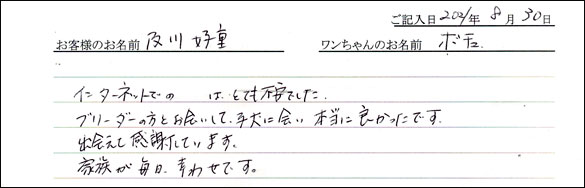 ご記入日 2021年 8月 30日
お客様のお名前 及川 好重 ワンちゃんのお名前 ボチュ
インターネットでの は とても不安でした。
ブリーダーの方とお会いして、子犬に会い 本当に良かったです。
出会えて感謝しています。
家族が毎日、幸わせです。